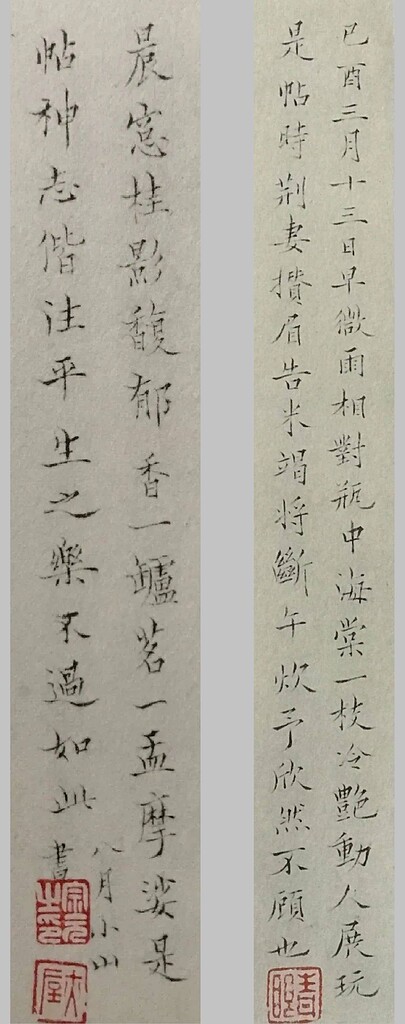 己酉三月十三日早微雨相對瓶中海棠一枝冷艷動人展玩
是帖時荆妻攢眉告米竭將斷午炊予欣然不顧也
晨窓桂影馥郁香一罏茗一盂摩娑是
帖神志偕注平生之樂不過如此
八月小山
書